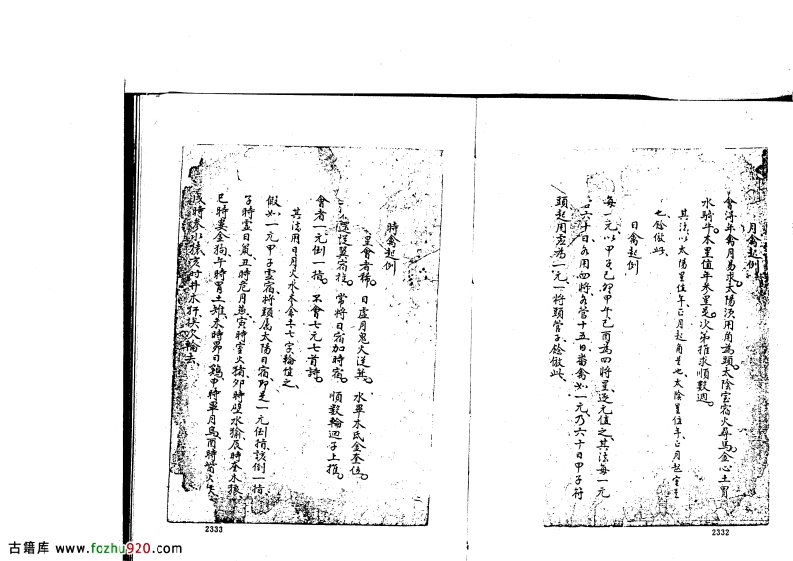 月禽起例
會得年禽月易求太陽須用角為頭太陰室宿火尋馬金心土胃
水騎牛木星值年參星是次第推求順數週
其法以太陽星值年正月起角是也太陰星值年正月起室是
也餘倣此
日禽起例
每一元以甲子己卯甲午己酉為四將星逐元值之其法每一元
六十日各用四將各管十五日畨禽如一元乃六十日甲子符
頭起用虛為一元一將頭管子餘倣此
2332
時禽起例
星會者稀 日虛月鬼火從箕 水畢木氐金奎位
翼宿柱 常將日宿加時宿 順數輪迴子上推
會者一元倒一指 不會七元七首詩
其法用日月火水木金土七字輪值之
假如一元甲子虛宿將頭屬太陽日宿即是一元倒指該倒一指
子時虛日鼠丑時危月燕寅時室火猪卯時壁水㺄辰時奎木狼
巳時婁金狗午時胃土雉未時昴日鷄申時畢月烏酉時觜火
戌時參水猿亥時井木犴挨次輪去
2333
古籍库 www.fozhu920.com